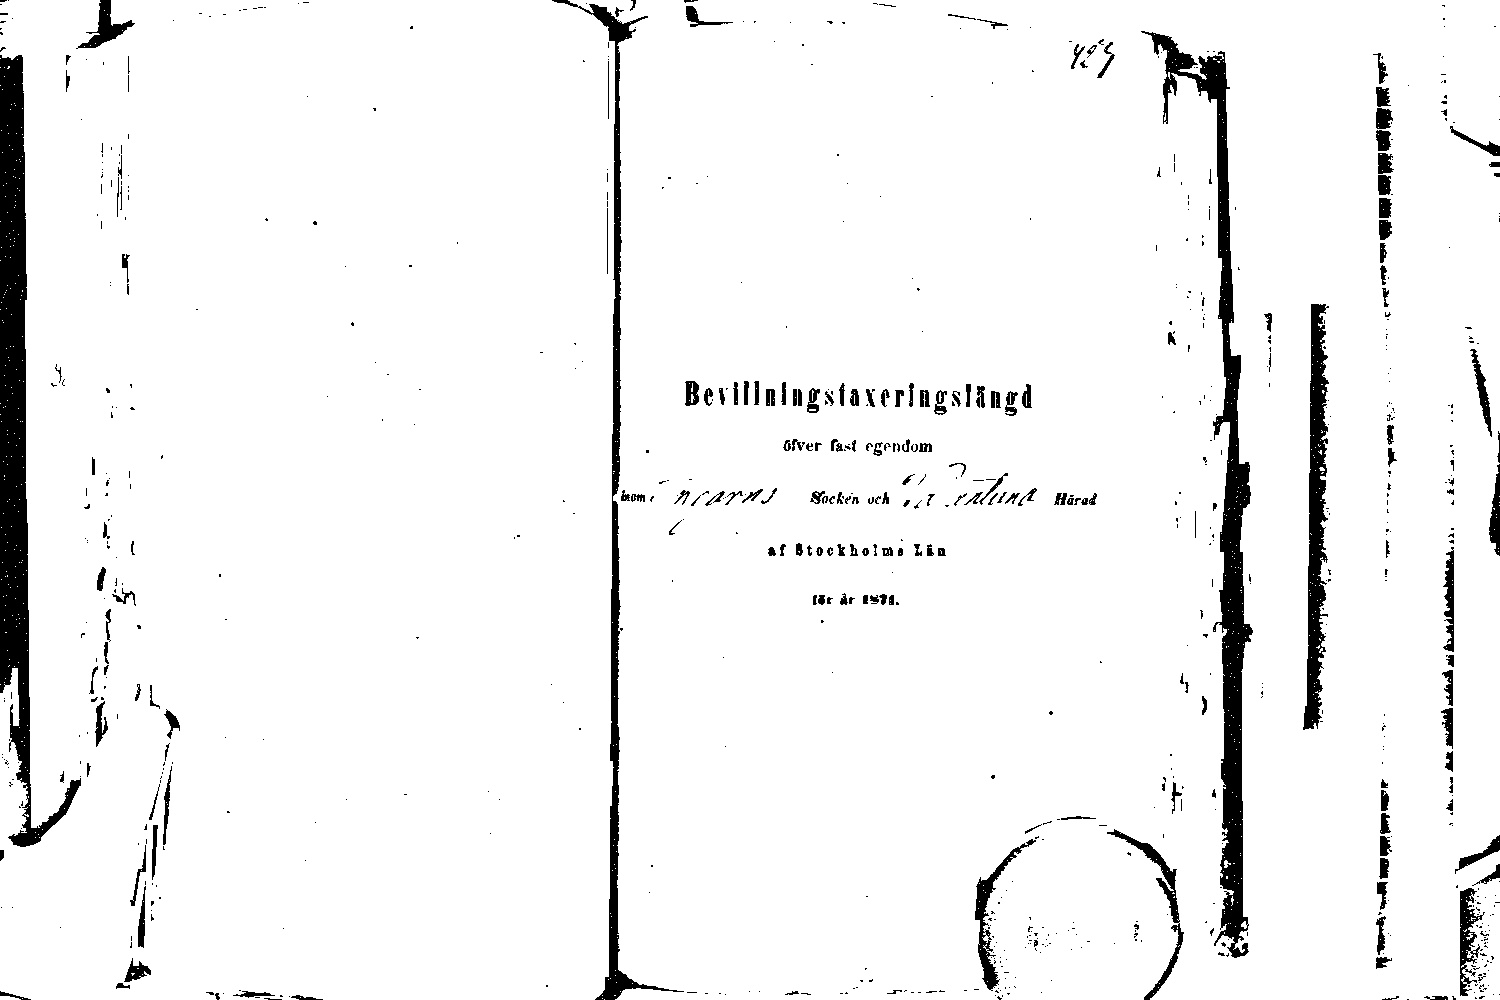 427
Bevillningstaxeringslängd
öfver fast egendom
inom Socken och Vallentuna Härad
af Stockholms Län
för år 1871.